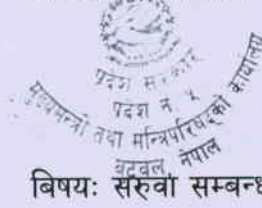 प्रदेश सरकार
प्रदेश नं. ५
मुख्यमन्त्री तथा मन्त्रिपरिषद्को कार्यालय
बुटवल, नेपाल
बिषयः सरुवा सम्बन्ध